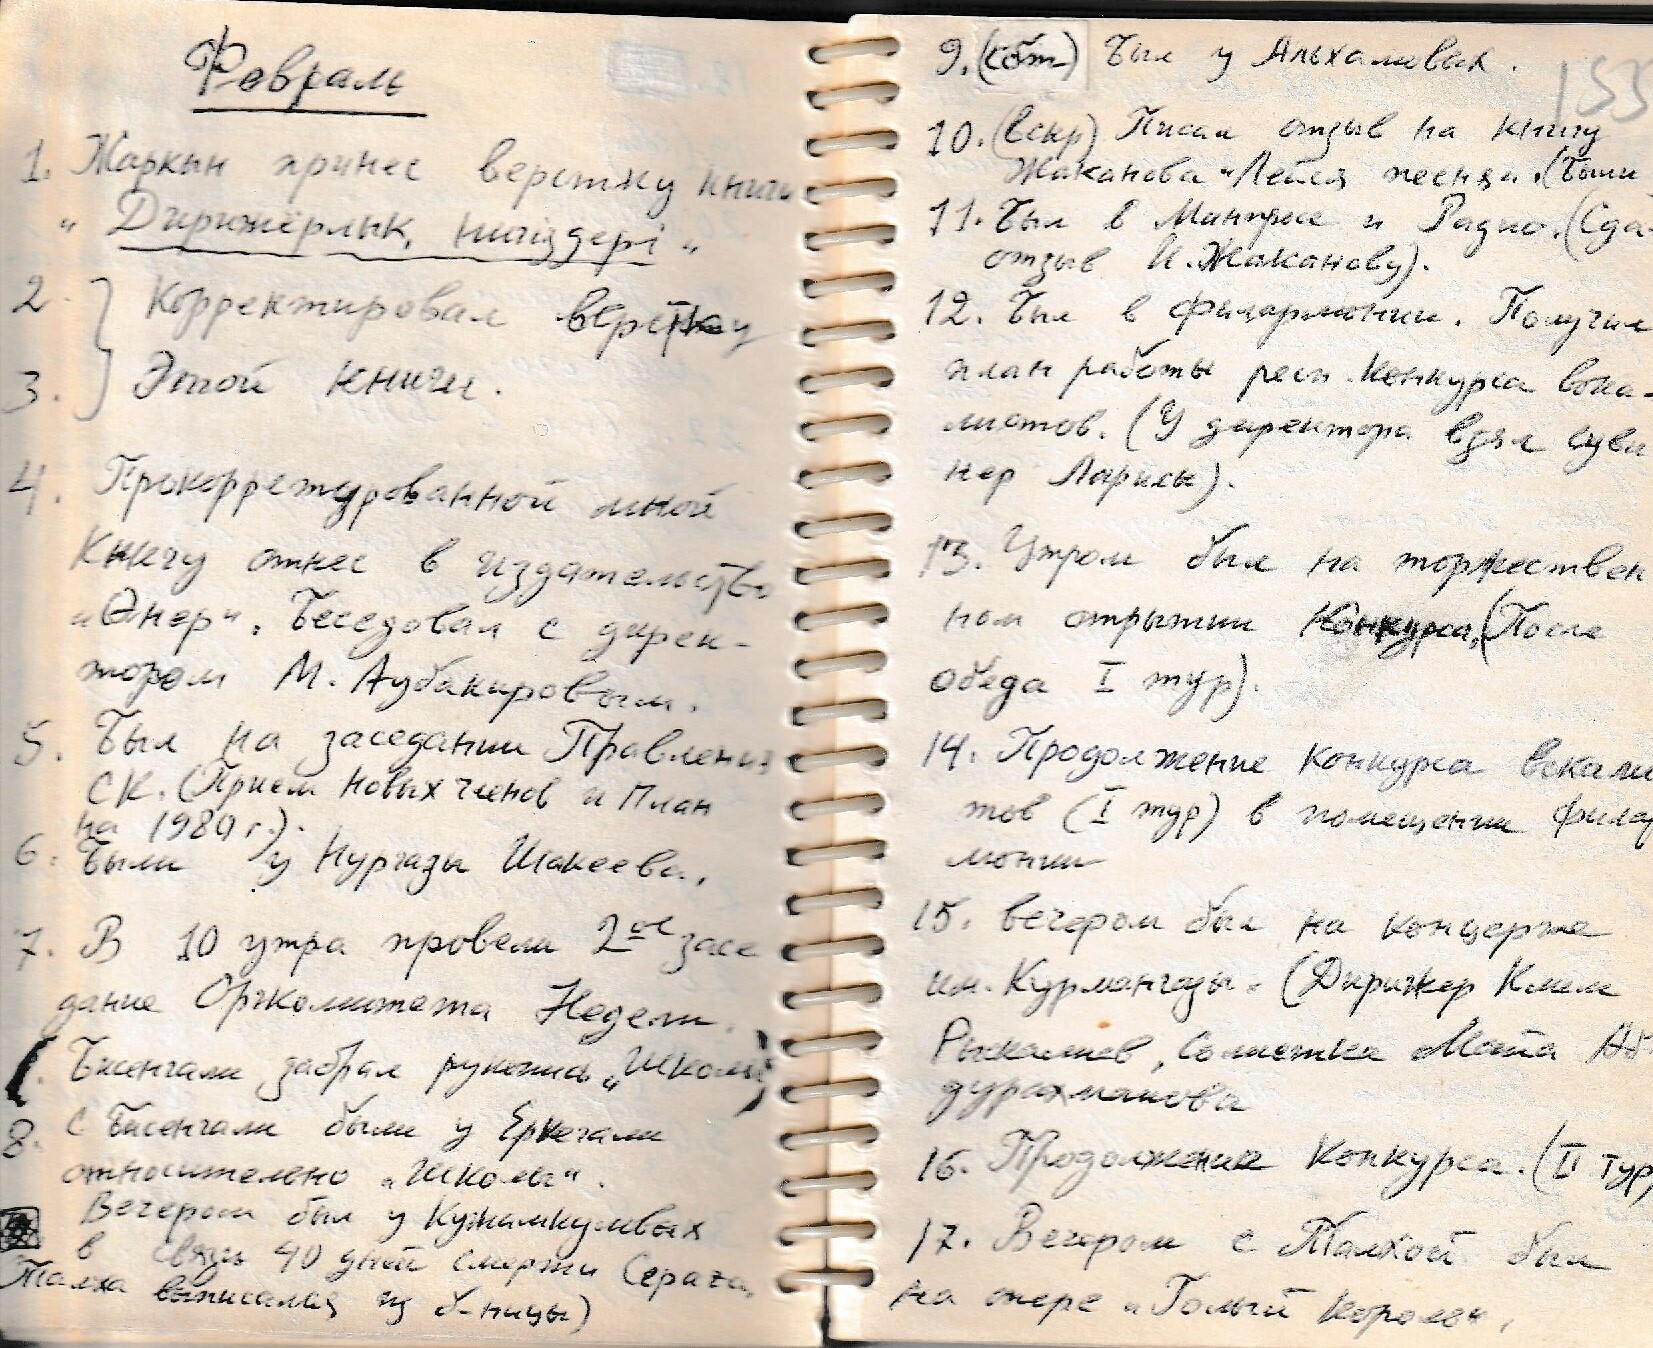 Февраль
1. Жаркын принес верстку книги
"Дирижёрлық негіздері"
2. Корректировал верстку
3. Этой книги.
4. Прокорретурованной мной
книгу отнес в издательство
"Өнер". Беседовал с дирек-
тором М. Аубакировым.
5. Был на заседании Правления
СК. (Прием новых членов и План
на 1989 г.).
6. Были у Нургазы Шакеева.
7. В 10 утра провели 2ое засе
дание Оргкомитета Недели.
(. Бисенгали забрал рукопись "Школы")
8. С Бисенгали были у Еркегали
относительно "Школы".
Вечером был у Кужамкуловых
в связь 40 дней смерти Серага,
Талха выписалая из б-ницы)
9. (сбт) Был у Альхамовых.
155
10. (вскр) Писал отзыв на книгу
Жаканова "Лейся песня". (Были
11. Был в Минкузе и Радио. (Сда-
отзыв И. Жаканову).
12. Был в филармонии. Получил
план работы респ. Конкурса вока-
листов. (У директора взял суве
нер Ларисы).
13. Утром был на торжествен
ном отрытии Конкурса, (После
обеда I тур).
14. Продолжение конкурса вокали
тов (I тур) в помещении филар
монии
15. вечером был на концерте
им. Курмангазы. (Дирижер Клим
Рыкалиев, солистка Мота Аб-
дурахманова
16. Продолжение Конкурса. (II тур)
17. Вечером с Талхой был
на опере "Голый король",